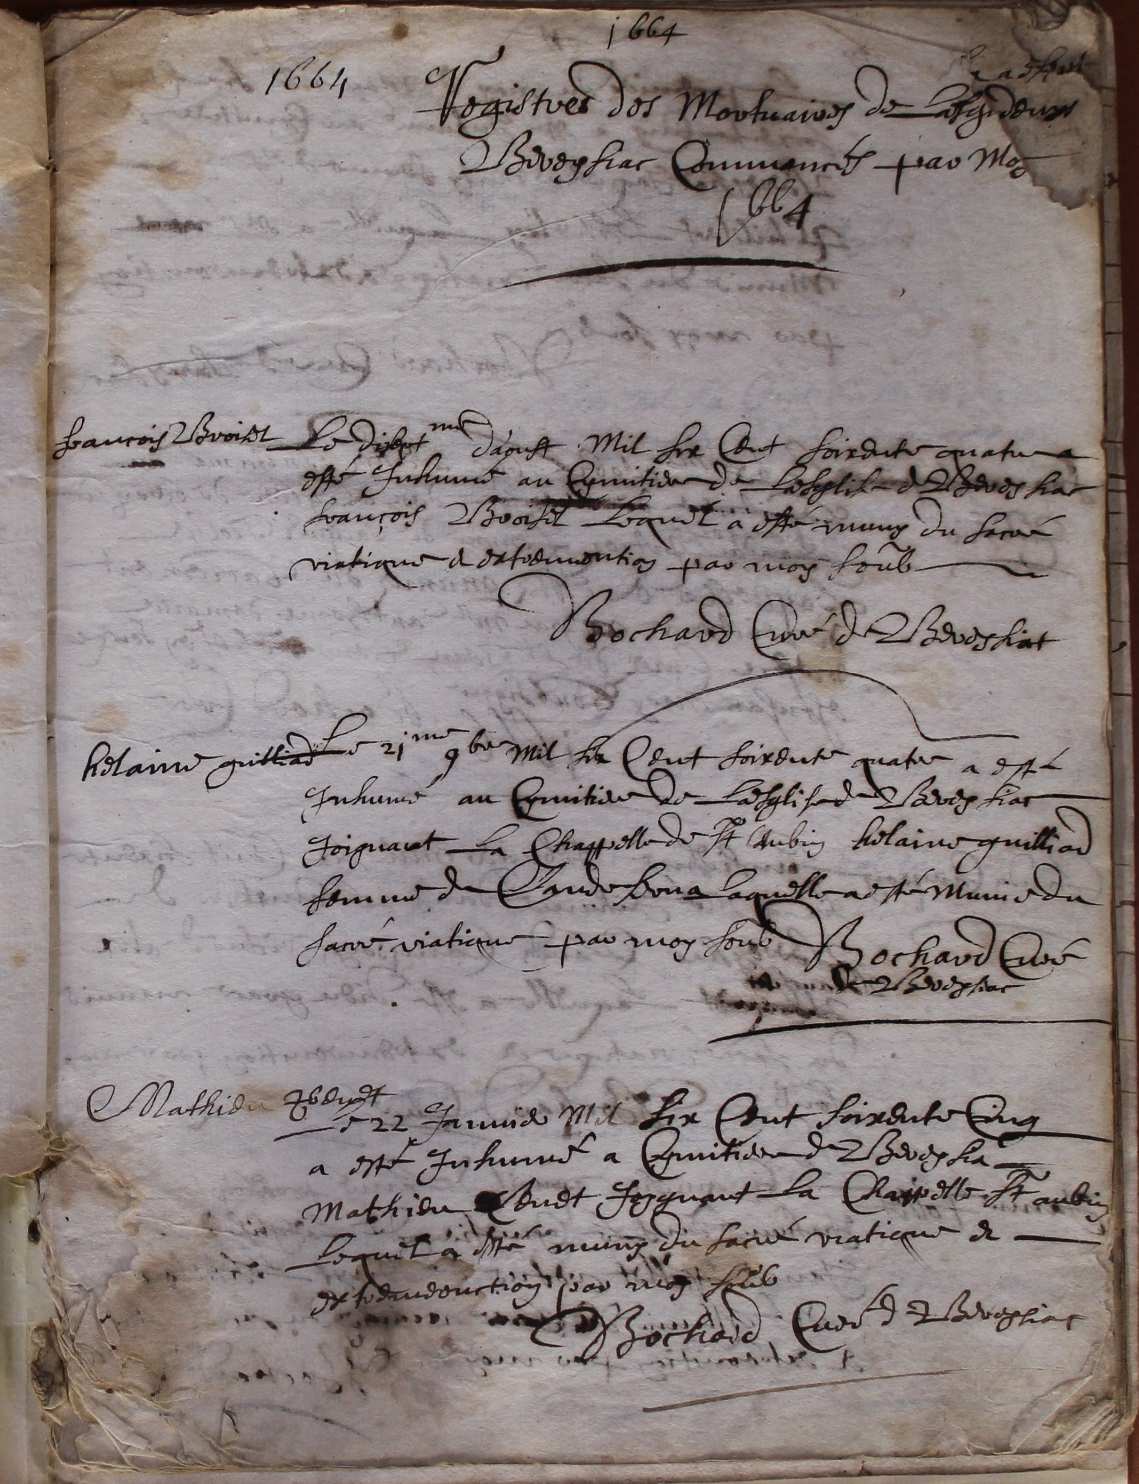 1664
1664
Registres des Mortuaires de Lesglise
Bereysiac Commencés par Moy
1664
francois Broiset
Le dixsept me d'aoust Mil six Cent soixente quatre a
esté Inhumé au Cymitiere de Lesglise de Bereysiac
françois Broiset Lequel a esté muny du sacré
viatique & extremontion par moy soub
Bochard Curé de Bereysiat
helaine guilliad
Le 21 me 9bre Mil six Cent soixente quatre a esté
Inhumé au Cymitiere de Lesglise de Bereysiac
Joignant La Chappelle de St Aubin helaine guilliad
femme de Claude Laquelle a esté Munie du
sacré viatique par moy soub Bochard Curé
de Bereysiac
Mathieu
Le 22 Janvie Mil six Cent soixente Cinq
a esté Inhumé a Cymitiere de Bereysia
Mathieu Joygnant La Chappelle St aubin
Lequel a esté muny du sacré viatique &
extremonction par moy soub
Bochard Curé de Bereysiac